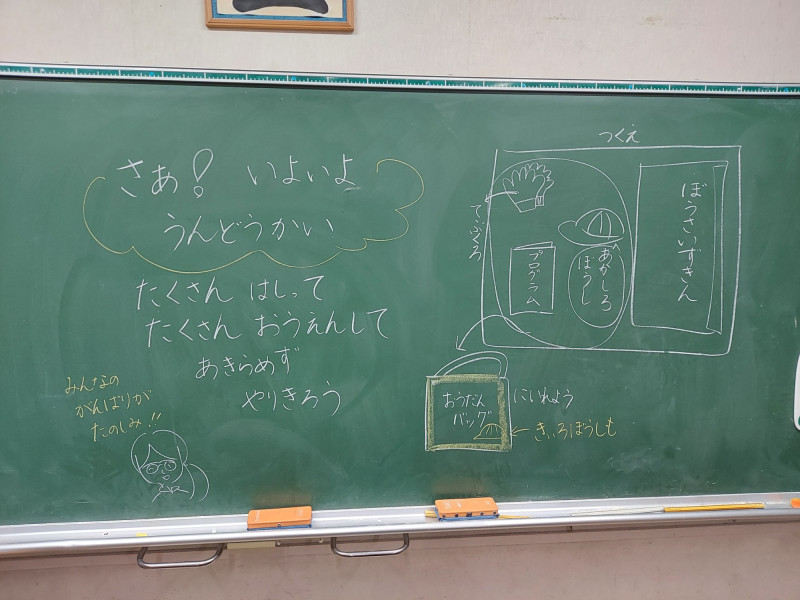 さぁ! いよいよ
うんどうかい
たくさん はしって
たくさん おうえんして
あきらめず
やりきろう
みんなの
がんばりが
たのしみ!!
つくえ
てぶくろ
プログラム
あかしろ
ぼうし
ぼうさいずきん
おうだん
バッグ
にいれよう
←きいろぼうしも